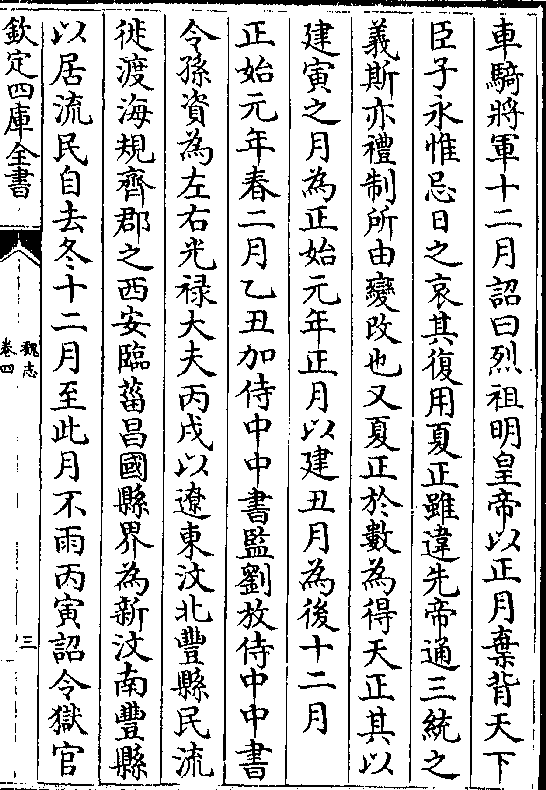 車騎將軍十二月詔曰烈祖明皇帝以正月棄背天下
臣子永惟忌日之哀其復用夏正雖違先帝通三統之
義斯亦禮制所由變改也又夏正於數為得天正其以
建寅之月為正始元年正月以建丑月為後十二月
正始元年春二月乙丑加侍中中書監劉放侍中中書
令孫資為左右光禄大夫丙戌以遼東汶北豐縣民流
徙渡海規齊郡之西安臨菑昌國縣界為新汶南豐縣
以居流民自去冬十二月至此月不雨丙寅詔令獄官
欽定四庫全書
魏志
卷四
三